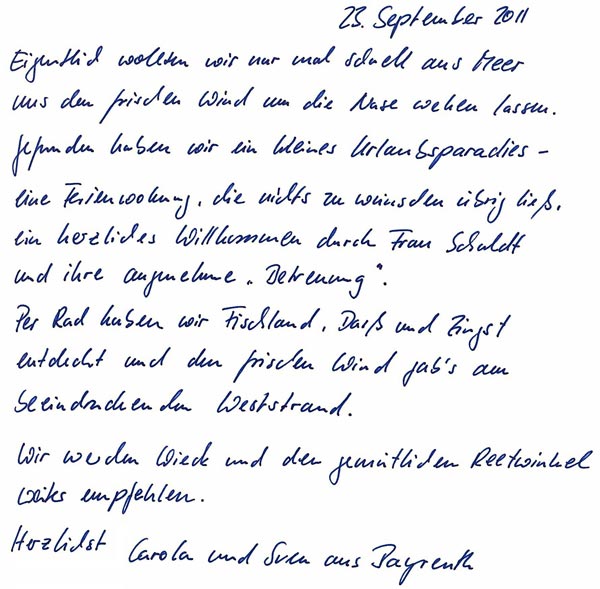 23. September 2011
Eigentlich wollten wir nur mal schnell ans Meer
uns den frischen Wind um die Nase wehen lassen.
Gefunden haben wir ein kleines Urlaubsparadies -
eine Ferienwohnung, die nichts zu wünschen übrig ließ,
ein herzliches Willkommen durch Frau Schuldt
und ihre angenehme „Betreuung".
Per Rad haben wir Fischland, Darß und Zingst
entdeckt und den frischen Wind gab's am
beeindruckenden Weststrand.
Wir werden Wieck und den gemütlichen Reetwinkel
weiter empfehlen.
Herzlichst Carola und Sven aus Bayreuth